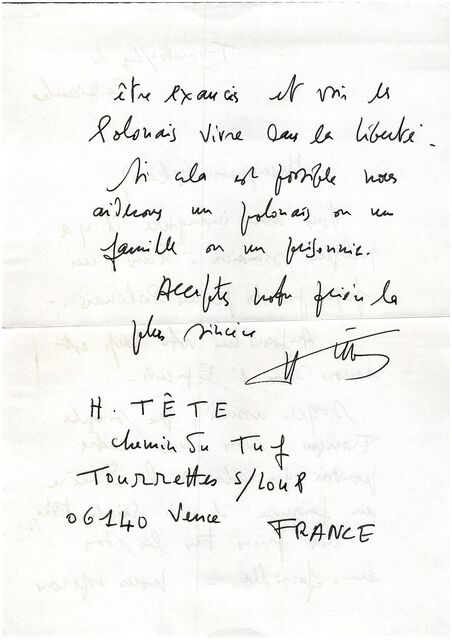 être exaucés et voir les
Polonais vivre dans la liberté.
Si cela est possible nous
aiderons un polonais ou un
famille ou un prisonnier.
Acceptez notre prière la
plus sincère
H. TÊTE
chemin du Tuf
Tourrettes S/LOUP
06140 Vence FRANCE